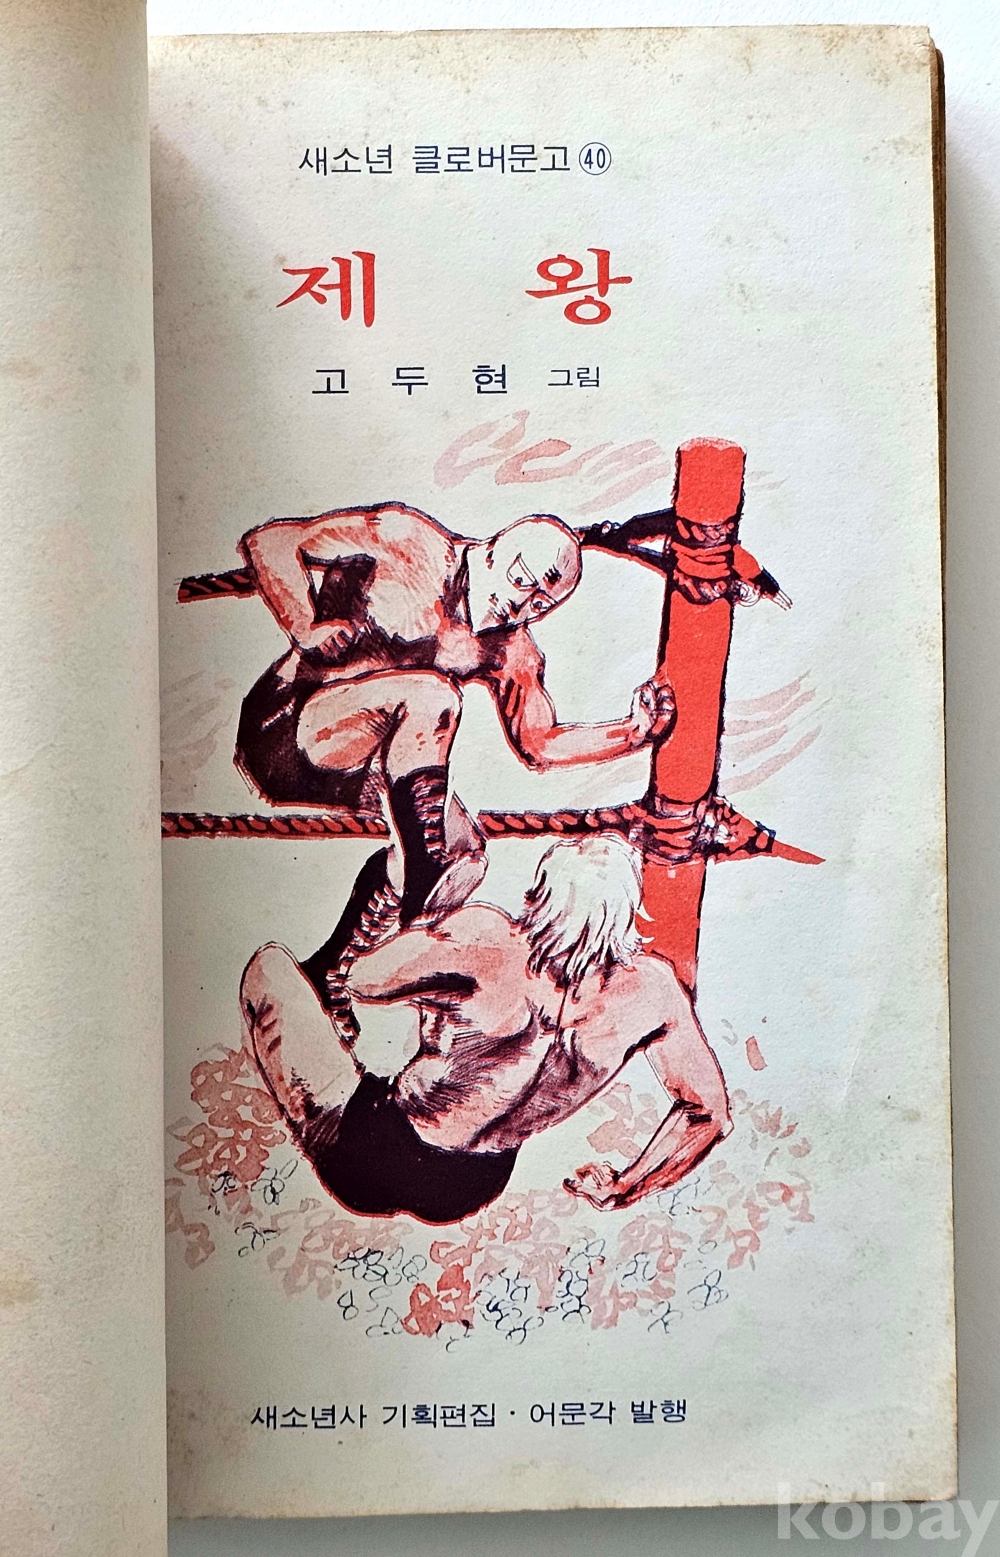 새소년 클로버문고㊵
제 왕
고 두 현 그림
새소년사 기획편집 · 어문각 발행
kobay